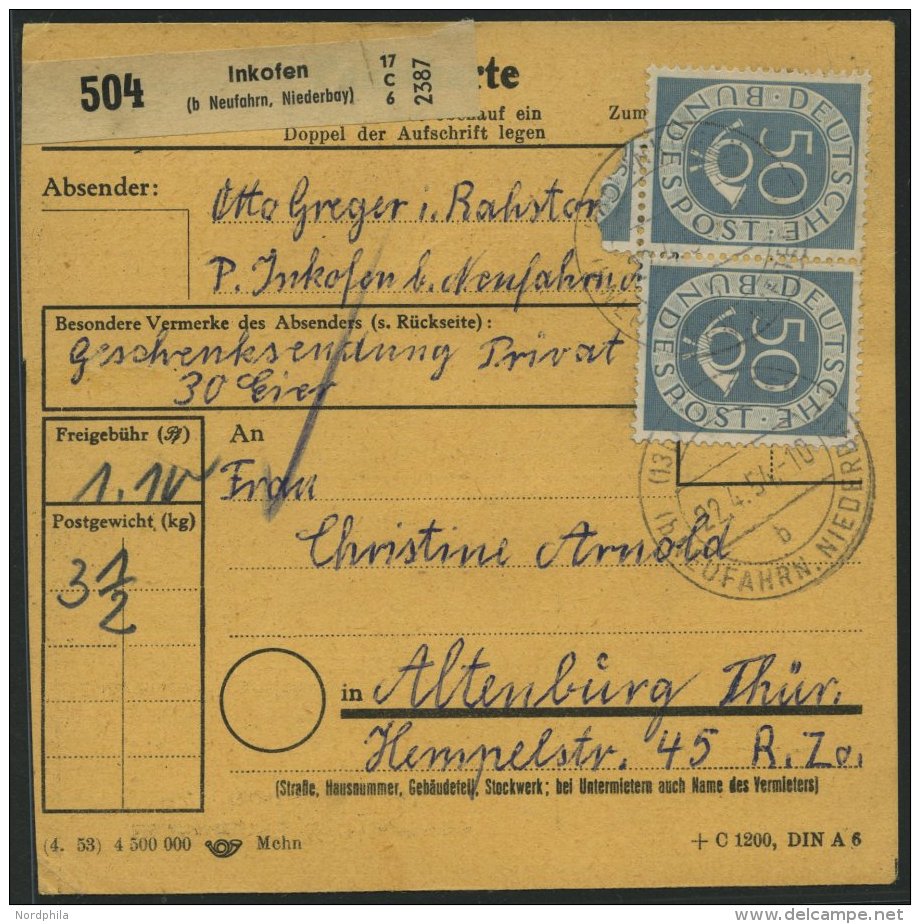 504
Inkofen
(b Neufahrn, Niederbay)
17
C
6
2387
rte
auf ein
Zum
Doppel der Aufschrift legen
DEUTSCHE BUNDESPOST
50
DEUTSCHE BUNDESPOST
50
Absender:
Otto Greger i. Rahstor
P. Inkofen b. Neufahrn
Besondere Vermerke des Absenders (s. Rückseite):
Geschenksendung Privat
30 Eier
Freigebühr (Pf)
1.10
Postgewicht (kg)
3 1/2
An
Frau
Christine Arnold
(13
22.4.54.-10
b
NEUFAHRN, NIEDERB
in Altenburg Thür.
Hempelstr. 45 R. Zo.
(Straße, Hausnummer, Gebäudeteil, Stockwerk; bei Untermietern auch Name des Vermieters)
(4. 53) 4 500 000 Mehn
+ C 1200, DIN A 6
Nordphila
delcampe.net